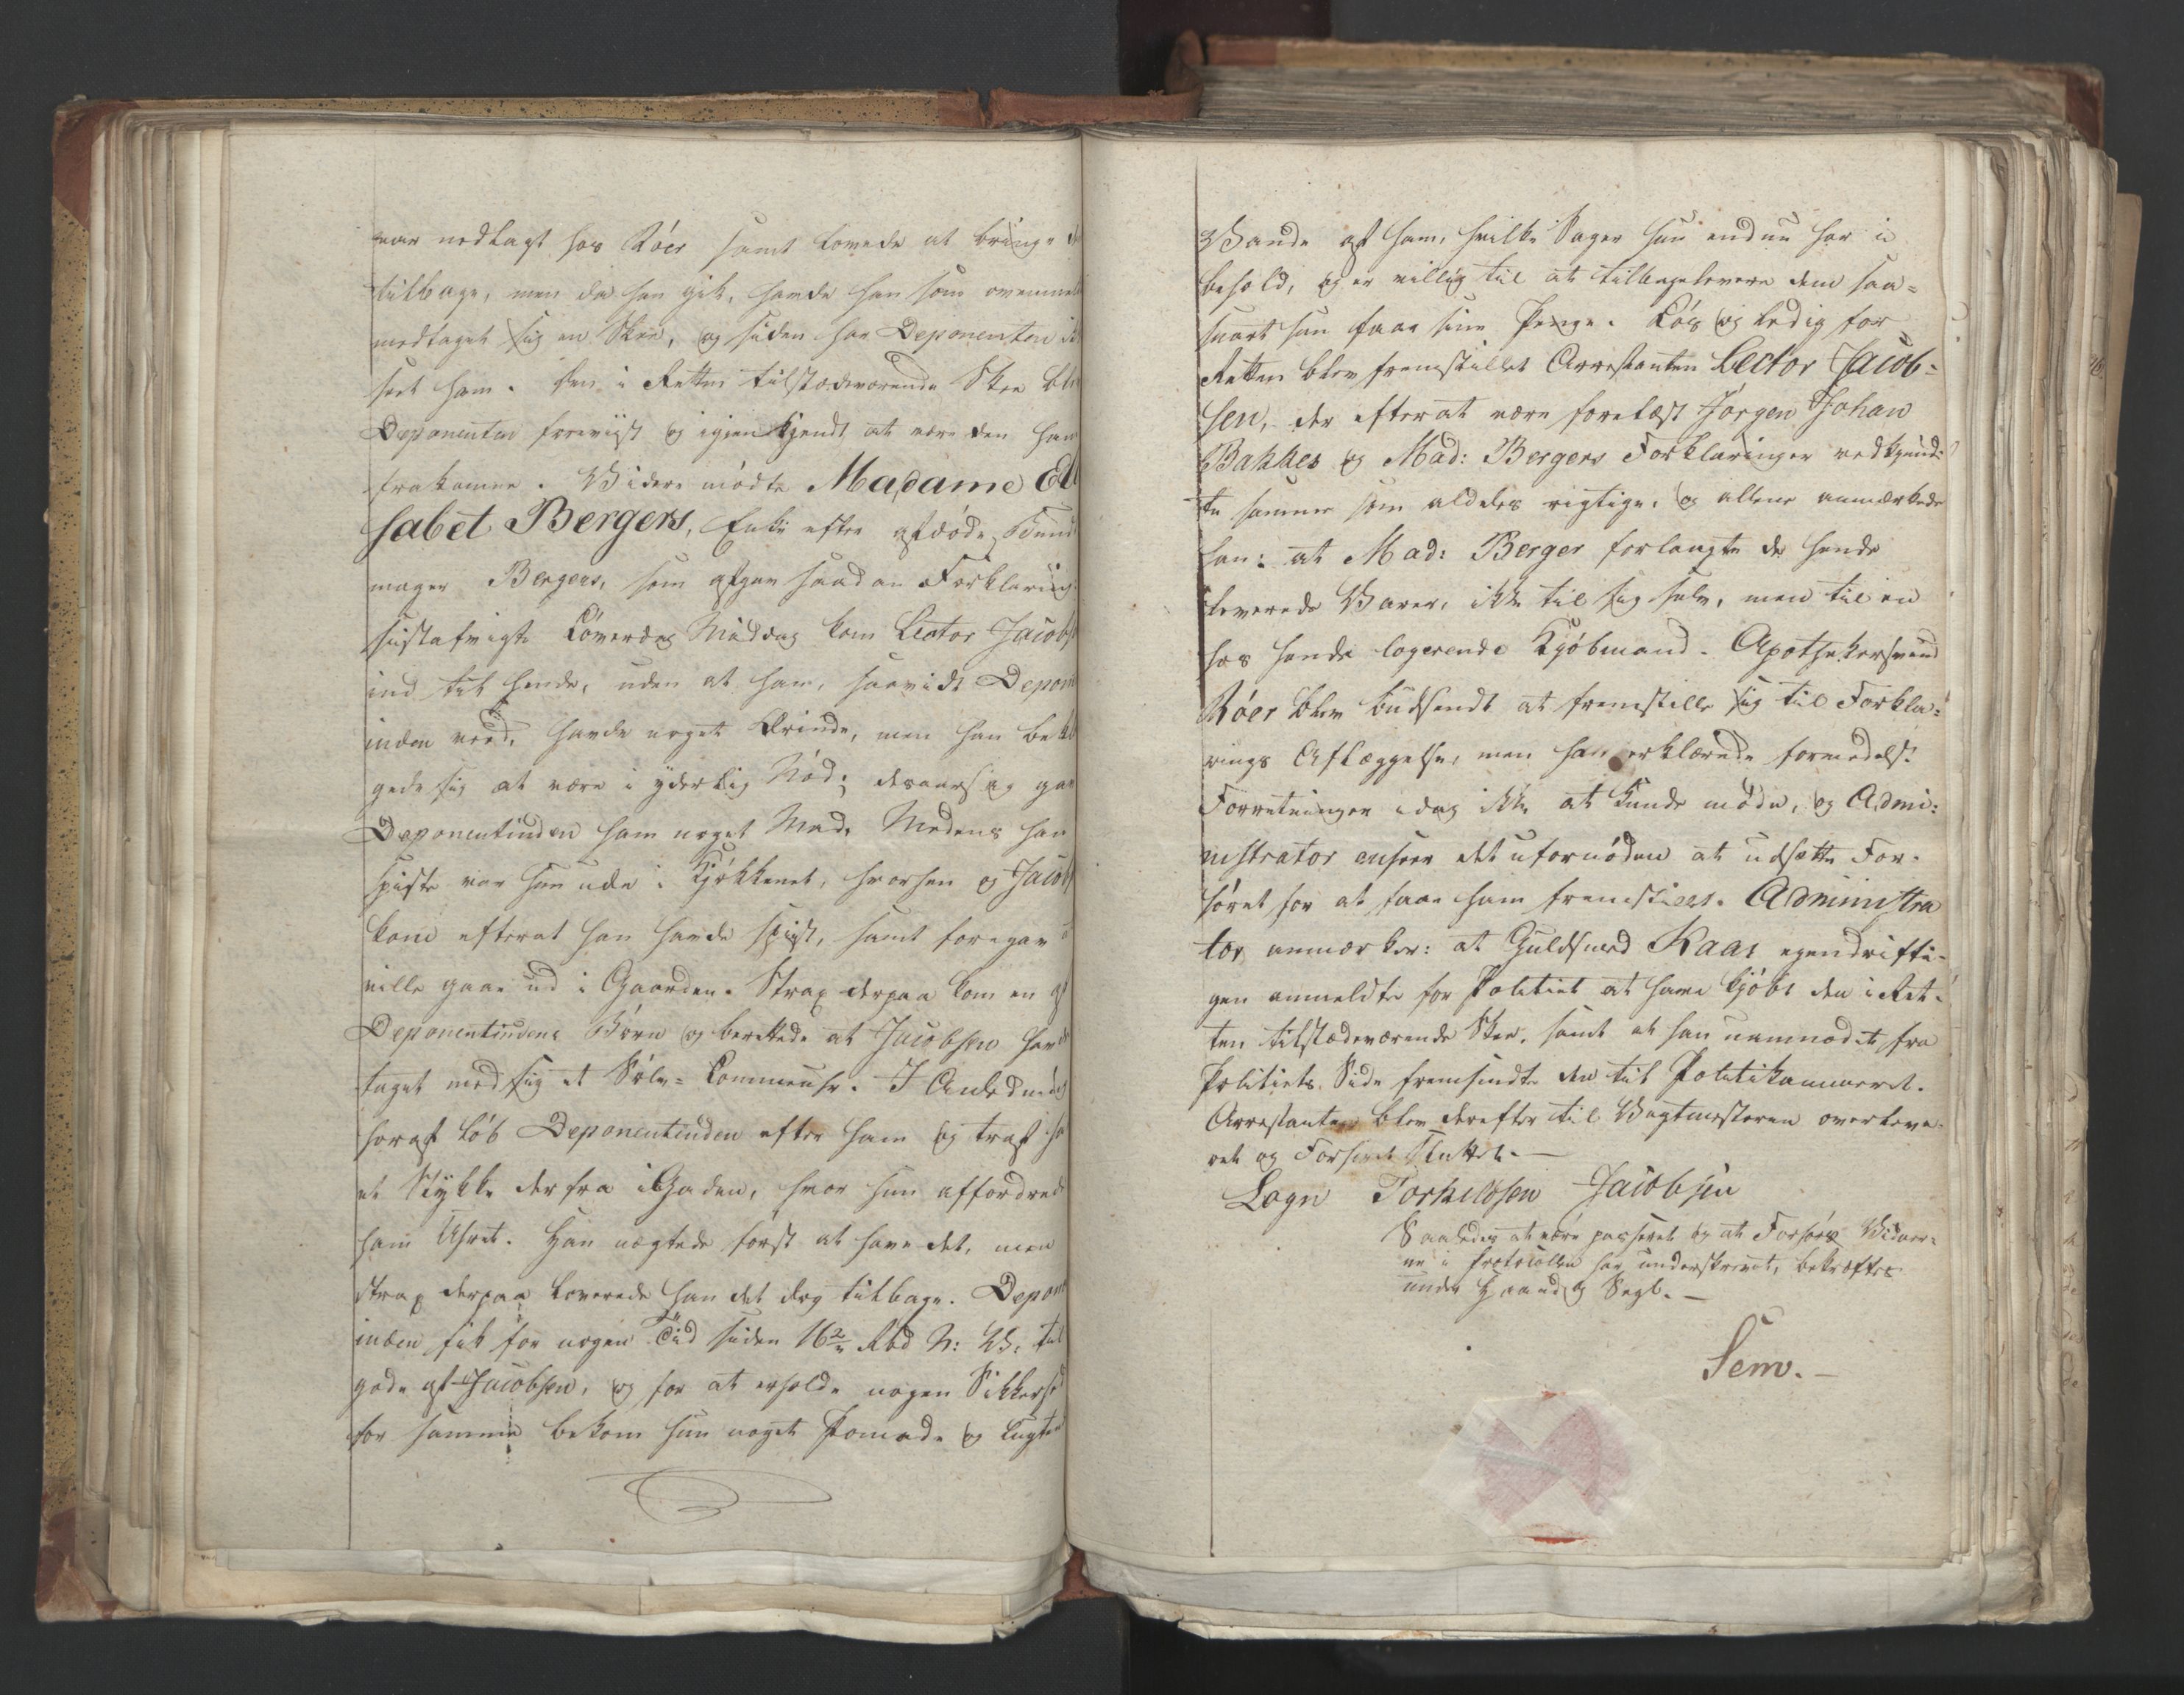 var nedlagt hos Röer samt lovede at bringe
tilbage, men da han gik, havde han som ovenmeldt
medtaget sig en Skee, og siden har Deponenten
seet ham. Den i Retten tilstædeværende Skee blev
Deponenten foreviist og igjenkjendt at være den ham
frakomne. Videre mödte Madame Eli
sabet Bergers, Enke efter afdöde Bund
mager Bergers, som afgav saadan Forklaring:
sidstafvigte Löverdag Middag kom Lector Jacobs
ind til hende, uden at han, saavidt Deponent
inden veed, havde noget Ærinde, men han bekla
gede sig at være i yderlig Nöd; desaarsag gav
Deponentinden ham noget Mad. Medens han
spiste var hun ude i Kjökkenet, hvorhen og Jacobs
kom efterat han havde spiist, samt foregav
ville gaae ud i Gaarden. Strax derpaa kom en af
Deponentindens Börn og berettede at Jacobsen havde
taget med sig et Sölv-Lommeuhr. I Anledning
heraf löb Deponentinden efter ham og traf ham
et Stykke derfra i Gaden, hvor hun affordrede
ham Uhret. Han nægtede först at have det, men
strax derpaa leverede han det dog tilbage. Deponent
inden fik for nogen Tid siden 16 2/. Rbd N: V: til
gode af Jacobsen, og for at erholde nogen Sikkerhed
for samme bekom hun noget Pomade og lugtende
Vande af ham, hvilke Sager hun endnu har i
behold, og er villig til at tilbagelevere dem saa-
snart hun faaer sine Penge. Lös og ledig for
Retten blev fremstillet Arrestanten Lector Jacob-
sen, der efterat være forelæst Jörgen Johan
Bakkes og Mad: Bergers Forklaringer vedkjend-
te samme som aldeles rigtige, og allene anmærkede
han: at Mad: Berger forlangte de hende
leverede Varer, ikke til sig selv, men til en
hos hende logerende Kjöbmand. Apothekersvend
Röer blev budsendt at fremstille sig til Forkla-
rings Aflæggelse, men han erklærede formedelst
Forretninger idag ikke at kunde möde, og Admi-
nistrator anseer det ufornöden at udsætte For-
höret for at faae ham fremstillet. Administra
tor anmærker: at Guldsmed Kaas egendrifti-
gen anmeldte for Politiet at have kjöbt den i Ret-
ten tilstædeværende Skee, samt at han uanmodet fra
Politiets Side fremsendte den til Politikammeret.
Arrestanten blev derefter til Vagtmesteren overleve-
ret og Forhöret sluttet.
Logn Torkildsen Jacobsen
Saaledes at være passeret og at Forhörs Vidner-
ne i Protocollen har underskrevet, bekræftes
under Haand og Segl.
Sem.